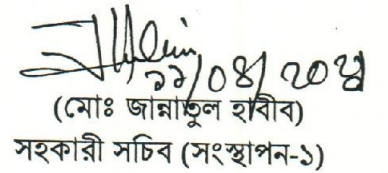 ১১/০৪/২০২১
(মোঃ জান্নাতুল হাবীব)
সহকারী সচিব (সংস্থাপন-১)